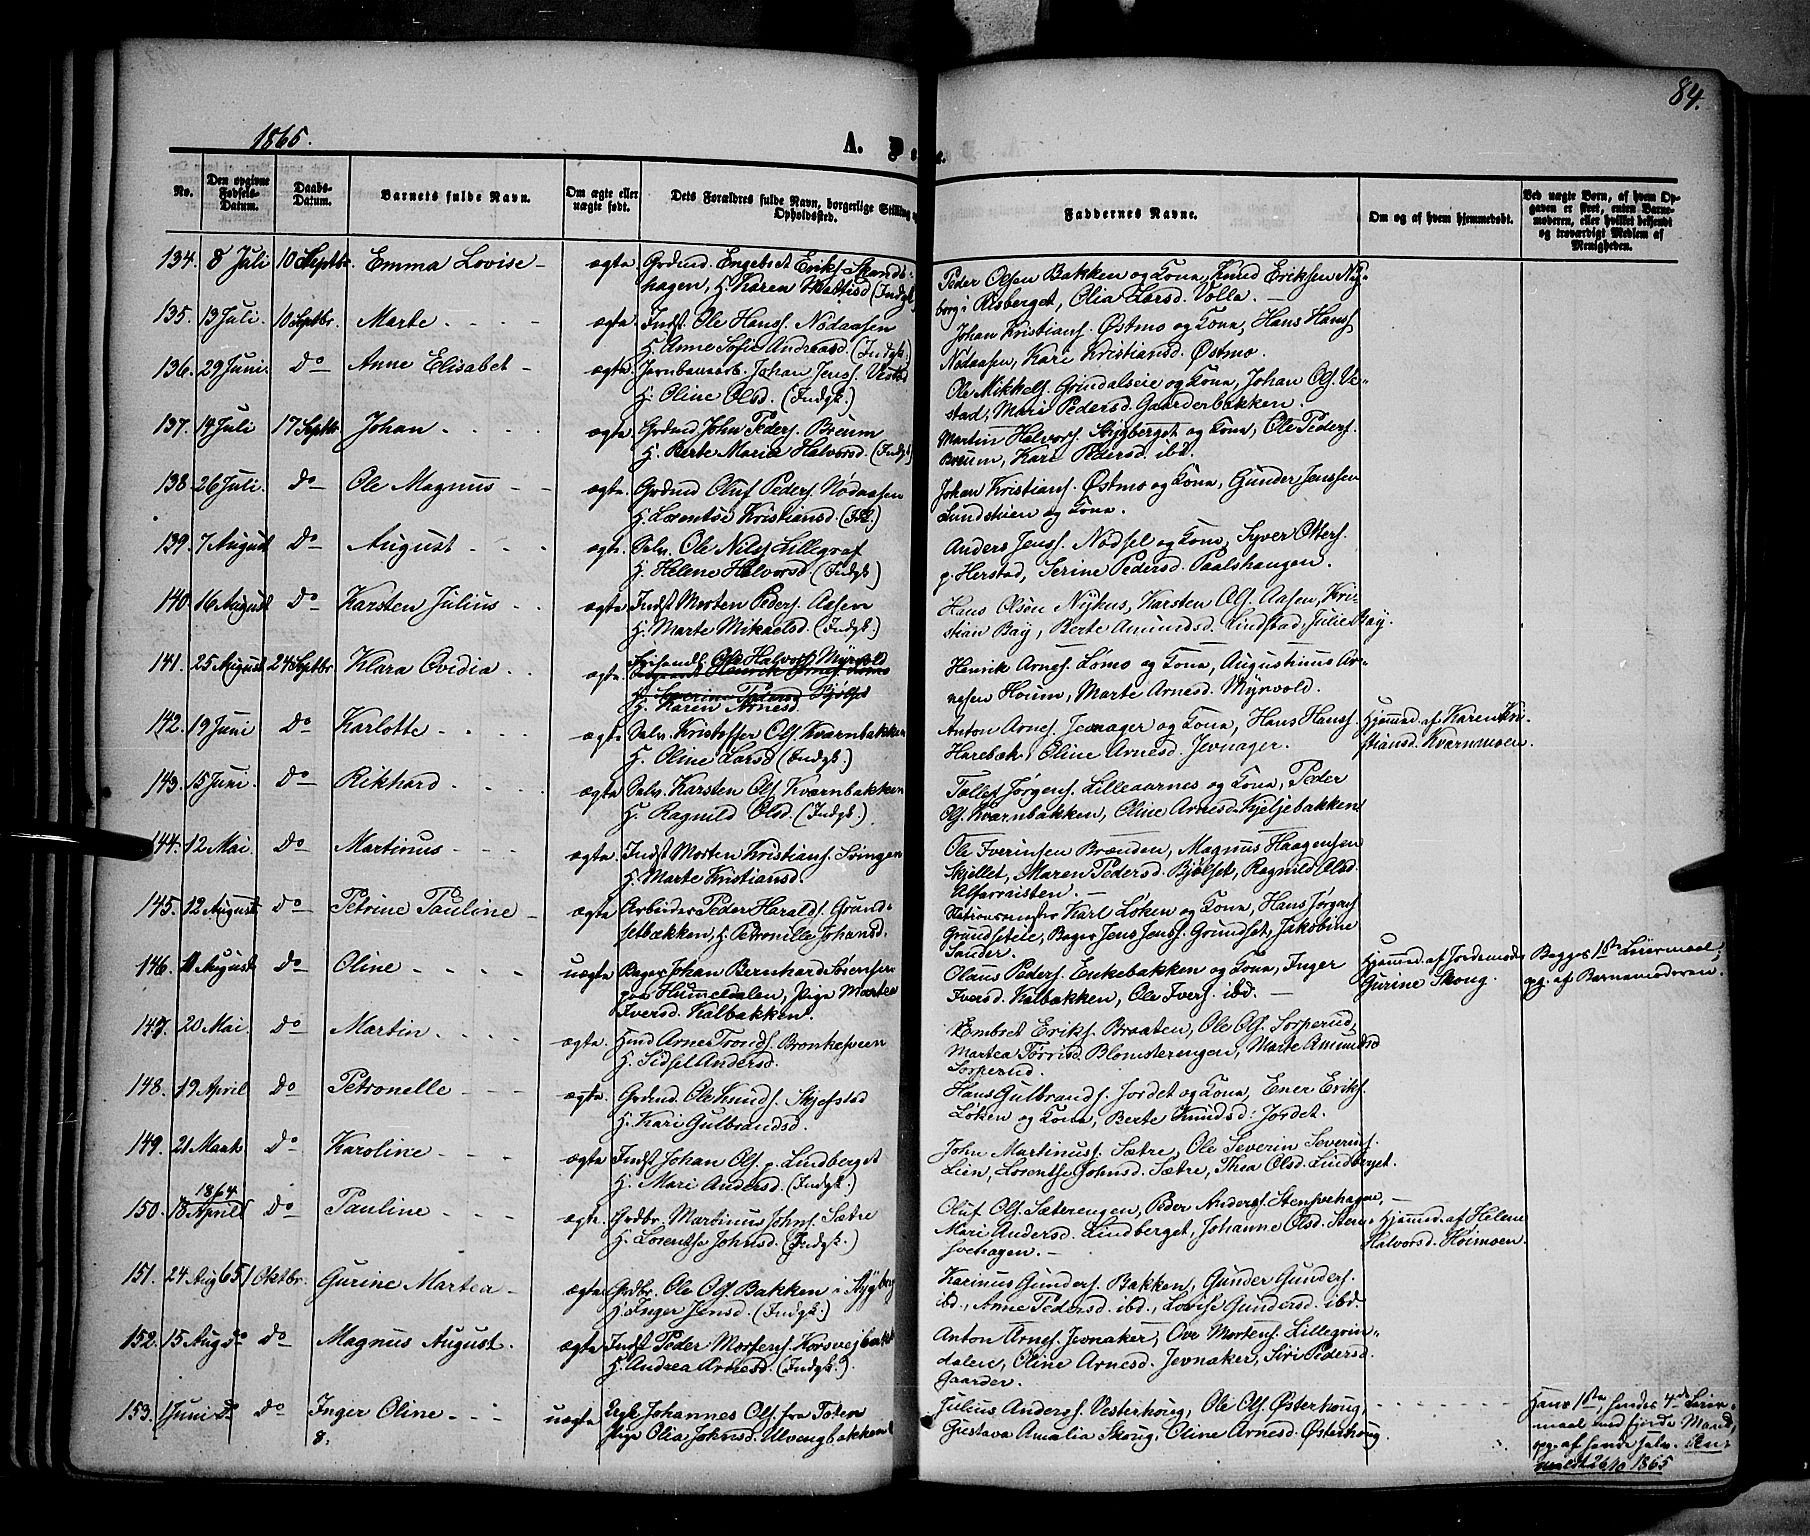 84.
1865.
A. D
No.
Den opgivne Fødsels-Datum.
Daabs-Datum.
Barnets fulde Navn.
Om ægte eller uægte født.
Dets Forældres fulde Navn, borgerlige Stilling og Opholdssted.
Faddernes Navne.
Om og af hvem hjemmedøbt.
Ved uægte Børn, af hvem Opgaven er skeet, enten Barnemoderen, eller hvilket bekjendt og troværdigt Medlem af Menigheden.
134. 8 Juli 10 Septbr. Emma Lovise - ægte Grdmd. Engebret Eriks. Strands-
hagen, H. Karen (Indgk.)
Peder Olsen Bakken og Kona, Knud Eriksen Ny-
borg i Risberget, Olia Larsd. Volla. -
135. 13 Juli. 10 Septbr. Marte - ægte. Indst. Ole Hanss. Nodaasen
H. Anne Sofie Andreasd. (Indgk.)
Johan Kristians. Østmo og Kona, Hans Hans
Nodaasen, Kari Kristiansd. Østmo.
136. 29 Juni. Do Anne Elisabet - ægte. Jernbanearb. Johan Jenss. Vestad
H. Oline Olsd. (Indgk.)
Ole Mikkels. Grindalseie og Kona, Johan Ols. Ve-
stad, Mari Pedersd. Gaarderbakken.
137. 14 Juli 17 Septbr. Johan - ægte Grdmd. John Peders. Breum
H. Berte Maria Halvorsd. (Indgk.)
Martin Halvors. Stygberget og Kona, Ole Peders.
Breum, Kari Pedersd. ibd.
138. 26 Juli. Do Ole Magnus - ægte. Grdmd Oluf Peders. Nodaasen
H. Lorentse Kristiansd. (Ik.)
Johan Kristians. Østmo og Kona, Gunder Jenssen
Sundstuen og Kona.
139. 7 August Do August - ægte. Selv. Ole Nils. Lillegraf
H. Helene Halvorsd. (Indgk.)
Anders Jenss. Nodsel og Kona, Syver Otters.
p. Herstad, Serine Pedersd. Paalshaugen.
140. 16 August Do Karsten Julius - ægte Indst Morten Peders. Aasen
H. Marte Mikaelsd. (Indgk.)
Hans Olsen Nyhus, Karsten Ols. Aasen, Kri-
stian Bay, Berte Amundsd. Lindstad, Julie Bay.
141. 25 August 24 Septbr. Klara Ovidia - ægte. Ole Halvors. Myrvold
Henrik Arnes. Lomo
H. Severine Pedersd. Bjølset
H. Karen Arnesd.
Henrik Arnes. Lomo og Kona, Augustinus Ar-
nesen Houm, Marte Arnesd. Myrvold.
142. 19 Juni Do Karlotte - ægte Selv. Kristoffer Ols. Kvarnbakken
H. Oline Larsd. (Indgk.)
Anton Arnes. Jevnager og Kona, Hans Hans.
Harebak, Oline Arnesd. Jevnager.
Hjemmd. af Karen Kri-
stiansd. Kvarnmoen.
143. 15 Juni. Do Rikhard - ægte Selv. Karsten Ols. Kvarnbakken
H. Ragnild Olsd. (Indgk.)
Tollef Jørgens. Lilleaarnes og Kona, Peder
Ols. Kvarnbakken, Oline Arnesd. Kjeljebakken.
144. 12 Mai. Do Martinus - ægte. Indst Morten Kristians. Svingen
H. Marte Kristiansd.
Ole Iverinsen Brænden, Magnus Haagensen
Skjellet, Maren Pedersd. Bjølset, Ragnild Olsd.
Alfarraisten. -
145. 12 August Do Petrine Pauline - ægte Arbeider Peder Haralds. Grund-
setbækken, H. Petronille Johansd.
Stationsmester Karl Løken og Kona, Hans Jørgens
Grundseteie, Bager Jens Jenss. Grundset, Jakobine
Sander.
146. 11 August Do Oline - uægte Bager Johan Bernhard Sørensen
paa Hummeldalen, Pige Martea
Iversd. Kalbakken.
Olaus Peders. Enkebakken og Kona, Inger
Iversd. Kalbakken, Ole Ivers. ibd. -
Hjemmd. af Jordemod.
Gurine Skoug.
Begges 1ste Leiermaal;
opg. af Barnemoderen.
147. 20 Mai. Do Martin - ægte. Hmd Arne Tronds. Bronkeseien
H. Sidsel Andersd.
Embret Eriks. Braaten, Ole Ols. Sorperud,
Martea Torrisd. Blomsterengen, Marte Amundsd
Sorperud.
148. 19 April Do Petronelle - ægte. Grdmd. Ole Knuds. Skjefstad
H. Kari Gulbrandsd.
Hans Gulbrands. Jordet og Kona, Ener Eriks.
Løken og Kona, Berte Knudsd. Jordet.
149. 21 Marts Do Karoline - ægte Indst Johan Ols. p. Lindberget
H. Mari Andersd. (Indgk.)
John Martinuss. Sætre, Ole Severin Severins.
Lein, Lorentse Johnsd. Sætre, Thea Olsd. Lindberget.
1864
150. 18 April Do Pauline - ægte. Grdbr. Martinus Johns. Sætre
H. Lorentse Johnsd. (Indgk.)
Oluf Ols. Sæterengen, Peder Anders. Stensvehagen,
Mari Andersd. Lindberget, Johanne Olsd. Sten-
svehagen. -
Hjemmd. af Helene
Halvorsd. Hoimoen.
151. 24 Aug 65 1 Oktbr. Gurine Martea - ægte Grdbr. Ole Ols. Bakken i Stygberg
H. Inger Jensd. (Indgk.)
Karinus Gunders. Bakken, Gunder Gunders.
ibd., Anne Pedersd. ibd., Lovise Gundersd. ibd.
152. 15 Aug do Do Magnus August - ægte Indst Peder Mortens. Korsvejbakk
H. Andrea Arnesd. (Indgk.)
Anton Arnes. Jevnaker, Ove Mortens. Lillegrin-
dalen, Oline Arnesd. Jevnaker, Siri Pedersd.
Gaarder.
153. 1 Juni do Do Inger Oline - uægte Ungk. Johannes Ols. fra Toten
8.
Pige Olia Johnsd. Ulvengbakken
Julius Anders. Vesterhoug, Ole Ols. Østerhoug,
Gustava Amalia Skoug, Oline Arnesd. Østerhoug.
Hans 1ste, hendes 4de Leier-
maal med fjerde Mand,
opg. af hende selv. An-
meldt 26/10 1865